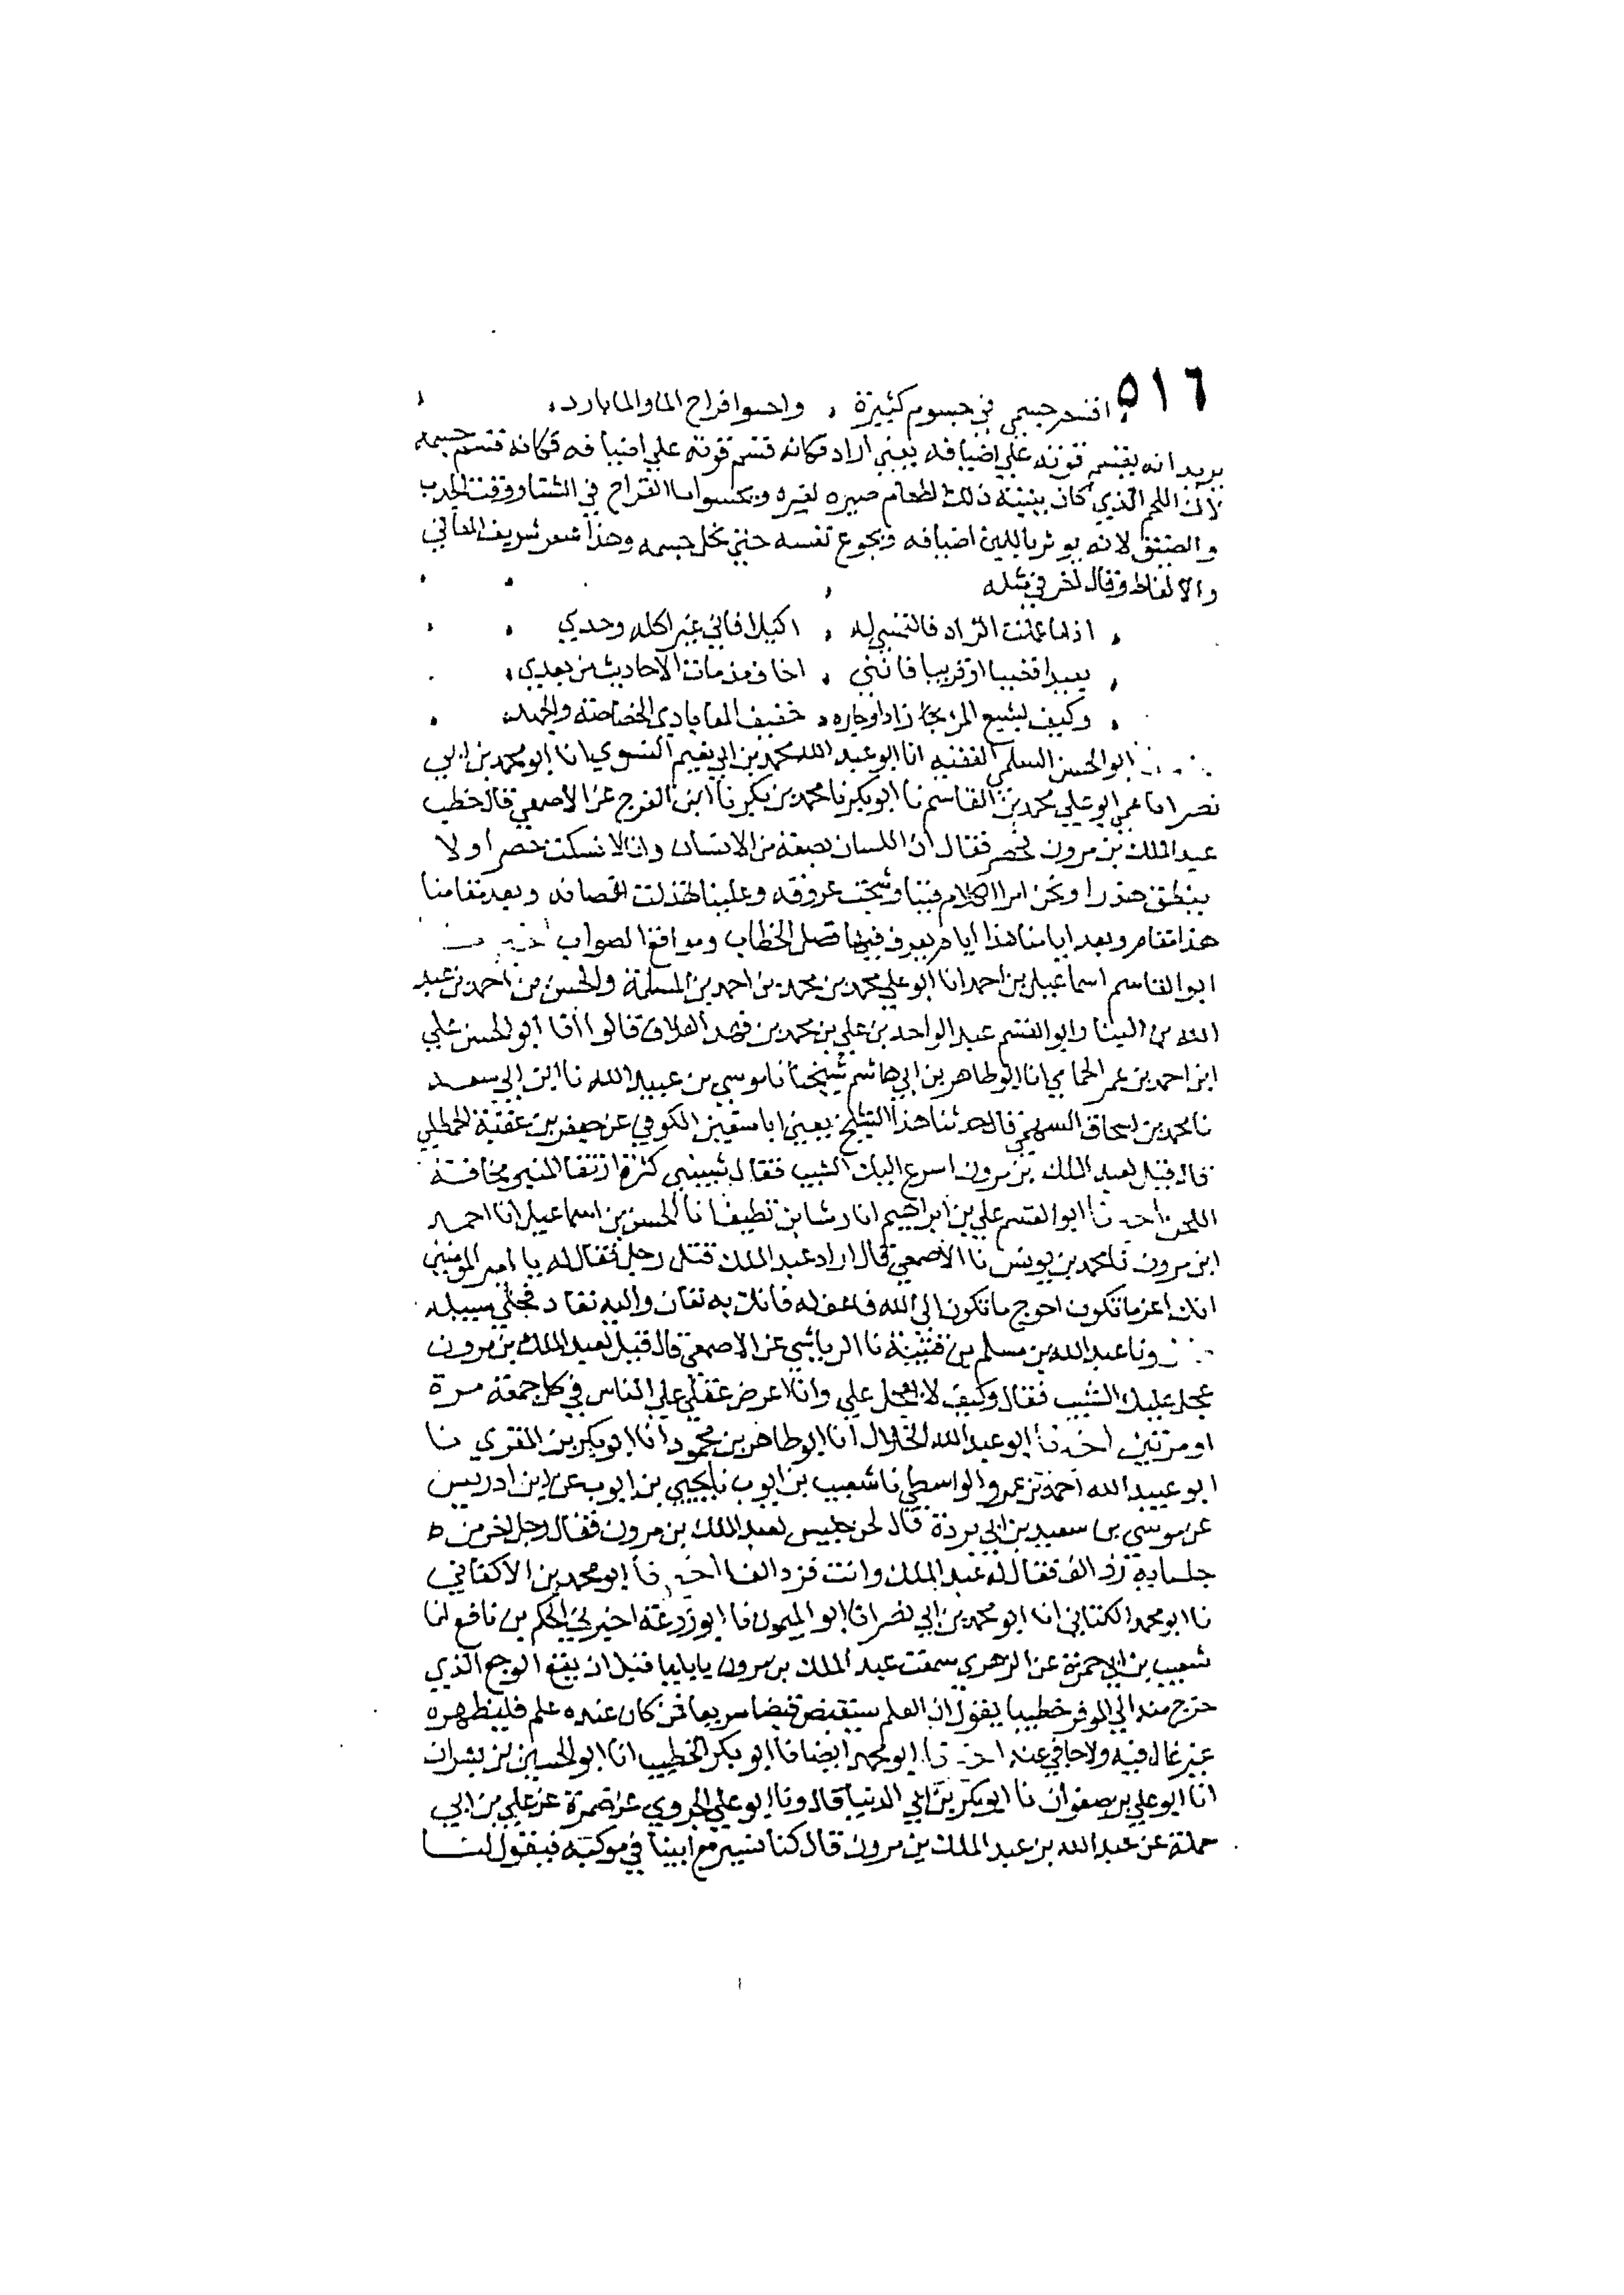 ٥١٦
اقسم جسمي في جسوم كثيرة ، واحسوا قراح الما والما بارد ،
يريد انه يقسم قوته علي اضيافه يعني اراد فكانه قسم قوته علي اضيافه فكانه قسم جسمه
لان اللحم الذي كان ينبته ذلك الطعام صيره لغيره ويحسوا ما القراح في الشتا ووقت الجدب
والضيق لانه يوثر باللبن اضيافه ويجوع نفسه حتي نحل جسمه وهذا شعر شريف المعاني
والالفاظ وقال اخر في مثله
، اذا ما عملت الزاد فالتمسي له ، اكيلا فاني غير اكله وحدي ،
، بعيدا قصيا او قريبا فانني ، اخاف مذمات الاحاديث من بعدي ،
، وكيف يسيغ المر زادا وجاره ، خفيف المعا بادي الخصاصة والجهد ،
ابو الحسن السلمي الفقيه انا ابو عبد الله محمد بن ابي نعيم النسوي انا ابو محمد بن ابي
نصر انا عمي ابو علي محمد بن القاسم نا ابو بكر نا محمد بن بكير نا ابن الفرج عن الاصمعي قال خطب
عبد الملك بن مرون فحصر فقال ان اللسان بضعة من الانسان وانا لا نسكت حصرا ولا
ننطق هذرا ونحن امرا الكلام فينا وشجت عروقه وعلينا تهدلت اغصانه وبعد مقامنا
هذا مقام وبعد ايامنا هذا ايام يعرف فيها فصل الخطاب ومواقع الصواب اخبرنا
ابو القاسم اسماعيل بن احمد انا ابو علي محمد بن محمد بن احمد بن المسلمة والحسن بن احمد بن عبد
الله بن البنا وابو القسم عبد الواحد بن علي بن محمد بن فهد العلاف قالوا انا ابو الحسن علي
ابن احمد بن عمر الحمامي انا ابو طاهر بن ابي هاشم شيخنا نا موسي بن عبيد الله نا ابن ابي سعد
نا محمد بن اسحاق السهمي قال حدثنا هذا الشيخ يعني ابا سفين الكوفي عن جعفر بن عقبة الخطلي
قال قيل لعبد الملك بن مرون اسرع اليك الشيب فقال شيبني كثرة ارتقا المنبر ومخافة
اللحن اخبرنا ابو القسم علي بن ابراهيم انا رشا بن نظيف نا الحسن بن اسماعيل انا احمد
ابن مرون نا محمد بن يونس نا الاصمعي قال اراد عبد الملك قتل رجل فقال له يا امير المومنين
انك اعز ما تكون احوج ما تكون الي الله فاعف له فانك به تعان واليه تعاد فخلي سبيله
ونا عبد الله بن مسلم بن قتيبة نا الرياشي عن الاصمعي قال قيل لعبد الملك بن مرون
عجل عليك الشيب فقال وكيف لا يعجل علي وانا اعرض عقلي علي الناس في كل جمعة مرة
او مرتين اخبرنا ابو عبد الله الخلال انا ابو طاهر بن محمود انا ابو بكر بن المقري نا
ابو عبيد الله احمد بن عمرو الواسطي نا شعيب بن ايوب نا يحيي بن ايوب عن ابن ادريس
عن موسي بن سعيد بن ابي بردة قال لحن جليس لعبد الملك بن مرون فقال رجل اخر من
جلسايه زد الف فقال له عبد الملك وانت فزد الفا اخبرنا ابو محمد بن الاكفاني
نا ابو محمد الكتاني انا ابو محمد بن ابي نصر انا ابو الميمون نا ابو زرعة اخبرني الحكم بن نافع انا
شعيب بن ابي حمزة عن الزهري سمعت عبد الملك بن مرون يايليا قبل ان يقع الوجع الذي
خرج منه الي الموقر خطيبا يقول ان العلم سيقبض قبضا سريعا فمن كان عنده علم فليظهره
غير غال فيه ولا جافي عنه اخبرنا ابو محمد ايضا نا ابو بكر الخطيب انا ابو الحسين بن بشران
انا ابو علي بن صفوان نا ابو بكر بن ابي الدنيا قال ونا ابو علي الجروي عن ضمرة عن علي بن ابي
حملة عن عبد الله بن عبد الملك بن مرون قال كنا نسير مع ابينا في موكبه فيقول لنا